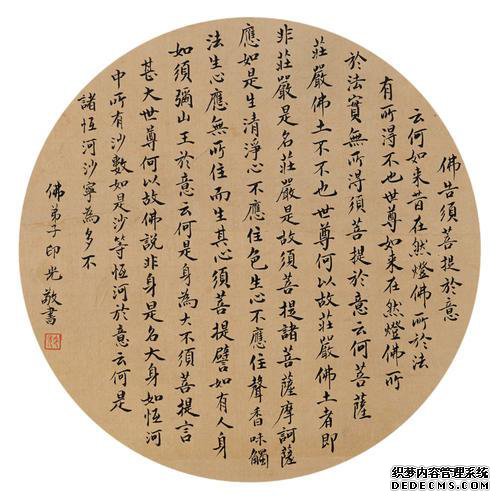 佛告須菩提於意
云何如来昔在然燈佛所於法
有所得不也世尊如来在然燈佛所
於法實無所得須菩提於意云何菩薩
莊嚴佛土不不也世尊何以故莊嚴佛土者即
非莊嚴是名莊嚴是故須菩提諸菩薩摩訶薩
應如是生清淨心不應住色生心不應住聲香味觸
法生心應無所住而生其心須菩提譬如有人身
如須彌山王於意云何是身為大不須菩提言
甚大世尊何以故佛說非身是名大身如恆河
中所有沙數如是沙等恆河於意云何是
諸恆河沙寧為多不
佛弟子印光敬書
织梦内容管理系统
DEDECMS.COM